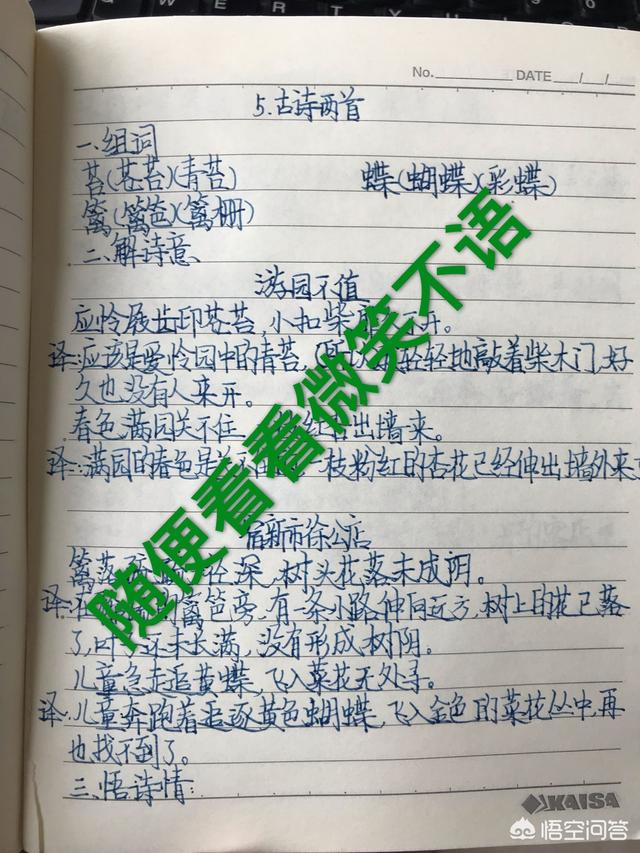 No. DATE / /
5.古诗两首
一、组词
苔(苍苔)(青苔) 蝶(蝴蝶)(彩蝶)
篱(篱笆)(篱栅)
二、解诗意
游园不值
应怜屐齿印苍苔,小扣柴 开。
译:应该是爱怜园中的青苔, 轻轻地敲着柴木门,好
久也没有人来开。
春色满园关不住 红杏出墙来。
译:满园的春色是 一枝粉红的杏花已经伸出墙外来
宿新市徐公店
篱落 深,树头花落未成阴。
译: 篱笆旁,有一条小路伸向远方,树上的花已落
了,叶子还未长满,没有形成树阴。
儿童急走追黄蝶,飞入菜花无处寻。
译:儿童奔跑着追逐黄色蝴蝶,飞入金色的菜花丛中,再
也找不到了。
三、悟诗情
随便看看微笑不语
KAISA
悟空问答